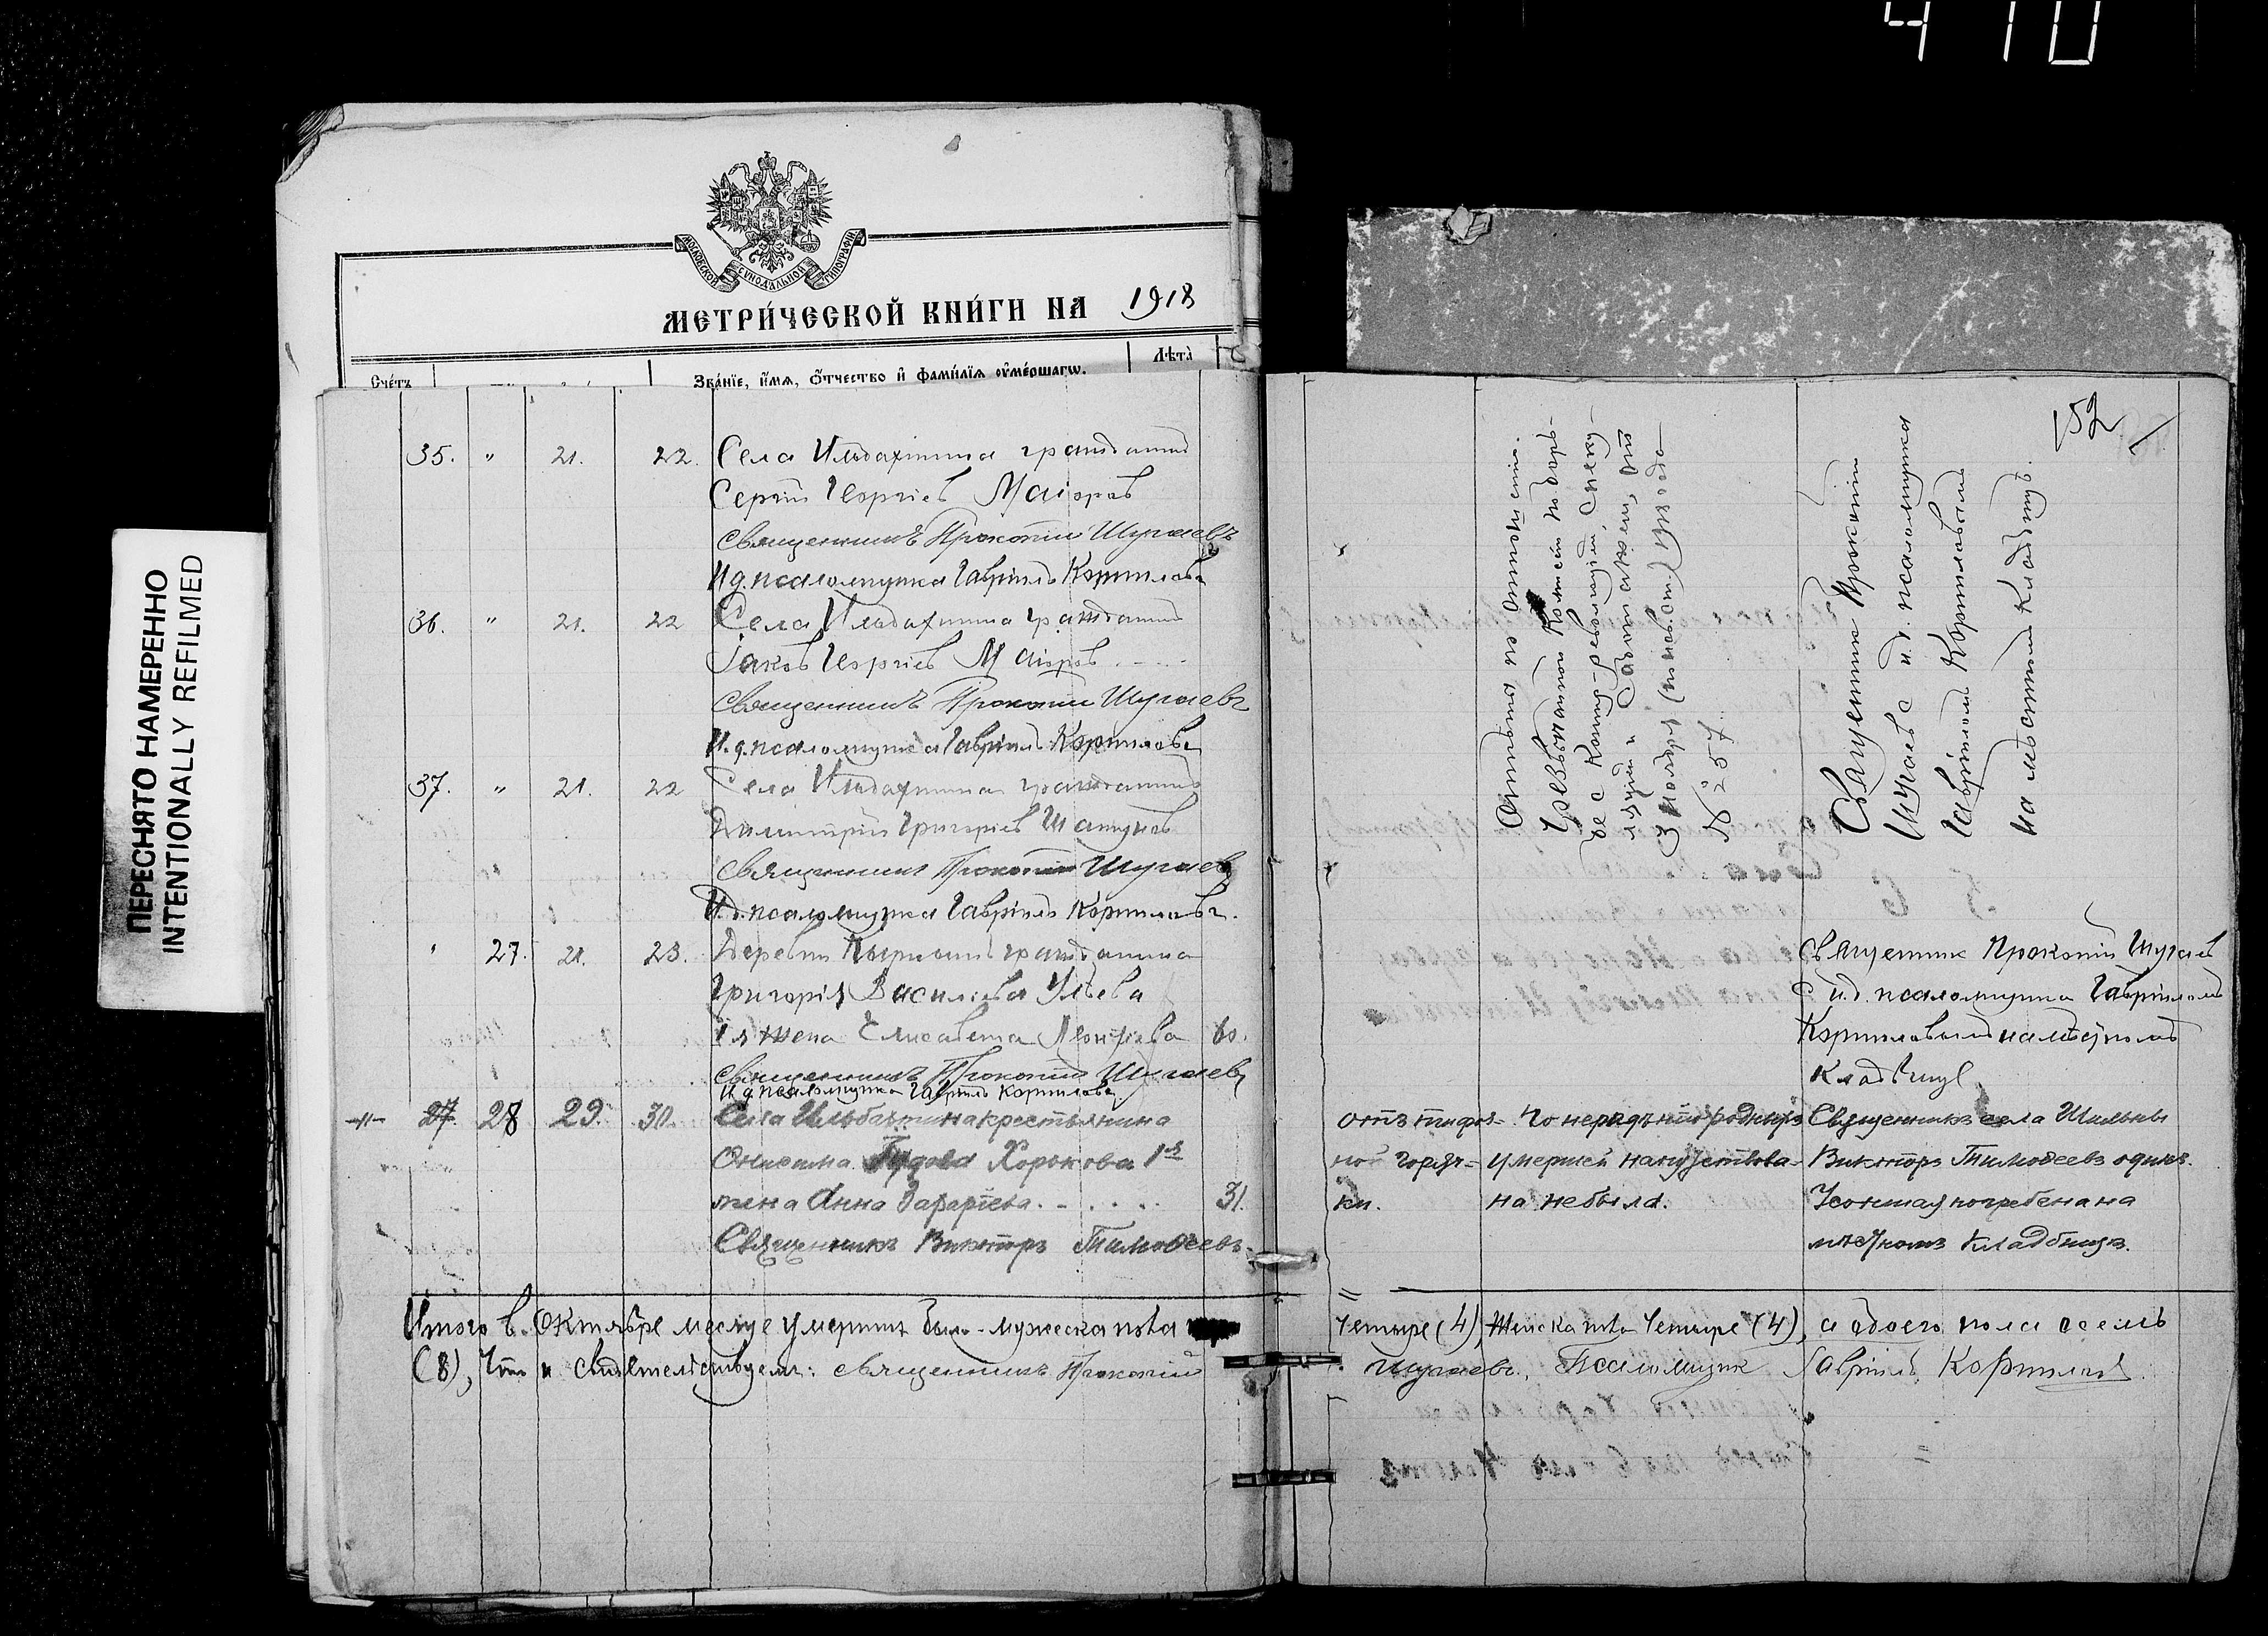 4 10
ПЕРЕСНЯТО НАМЕРЕННО
INTENTIONALLY REFILMED
МОСКОВСКОЙ СѴНОДАЛЬНОЙ ТИПОГРАФІИ
МЕТРИ́ЧЕСКОЙ КНИ́ГИ НА 1918
Сче́тъ
Зва́нїе, и҆́мѧ, ѻ҆́тчество и҆ фами́лїѧ ᲂу҆ме́ршагѡ.
Лѣта̀
152
35. " 21. 22. Села Ильдахтина гражданин
Сергій Георгіев Маіоров
Священникъ Прокопій Шугаевъ
И д. псаломщика Гавріилъ Корниловъ
36. " 21. 22 Села гражданин
Іаков Георгіев Маіоров
Священникъ Прокопій Шугаевъ
И. д. псаломщика Гавріилъ Корниловъ
37. " 21. 22 Села гражданин
Димитрій Григоріев
Священникъ Прокопій Шугаевъ
И. д. псаломщика Гавріилъ Корниловъ.
" 27. 21. 23. Деревни гражданина
Григорія Василіева
1я жена Елисавета 60.
Священникъ Прокопій Шугаевъ
И д. псаломщика Гавріилъ Корниловъ
27. 28 29. 30. Села крестьянина
Онисима Хорькова 1я
жена Анна Захаріева. 31.
Священникъ Викторъ Тимоѳеевъ.
по отношенію
Чрезвычайной Комисіи по борь-
бе с контр-революціей, спеку-
ляціей и Саботажем, от
3 ноября (по нов. ст.) 1918 года
№ 257.
Священник Прокопій
Шугаев с и. д. псаломщика
Гавріилом Корниловым
на местном кладбищѣ.
Священник Прокопій Шугаев
с и. д. псаломщика Гавріилом
Корниловым на местном
кладбищѣ
отъ тифоз-
ной горяч-
ки.
по нерадѣнію родныхъ
умершей напутствова-
на не была.
Священникъ села
Викторъ Тимоѳеевъ одинъ.
Усопшая погребена на
мѣстномъ кладбищѣ.
Итого в Октябре месяце умерших было - мужеска пола четыре (4), женска пола четыре (4), а обоего пола восемь
(8), что и свидетельствуем: священникъ Прокопій Шугаевъ, Псаломщик Гавріилъ Корнилов.